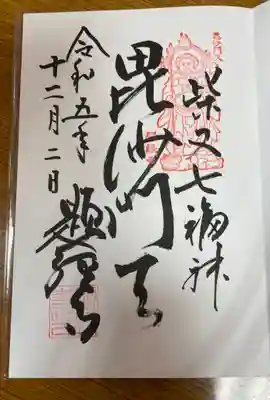 柴又七福神
毘沙門天
令和五年
十二月二日
題経寺